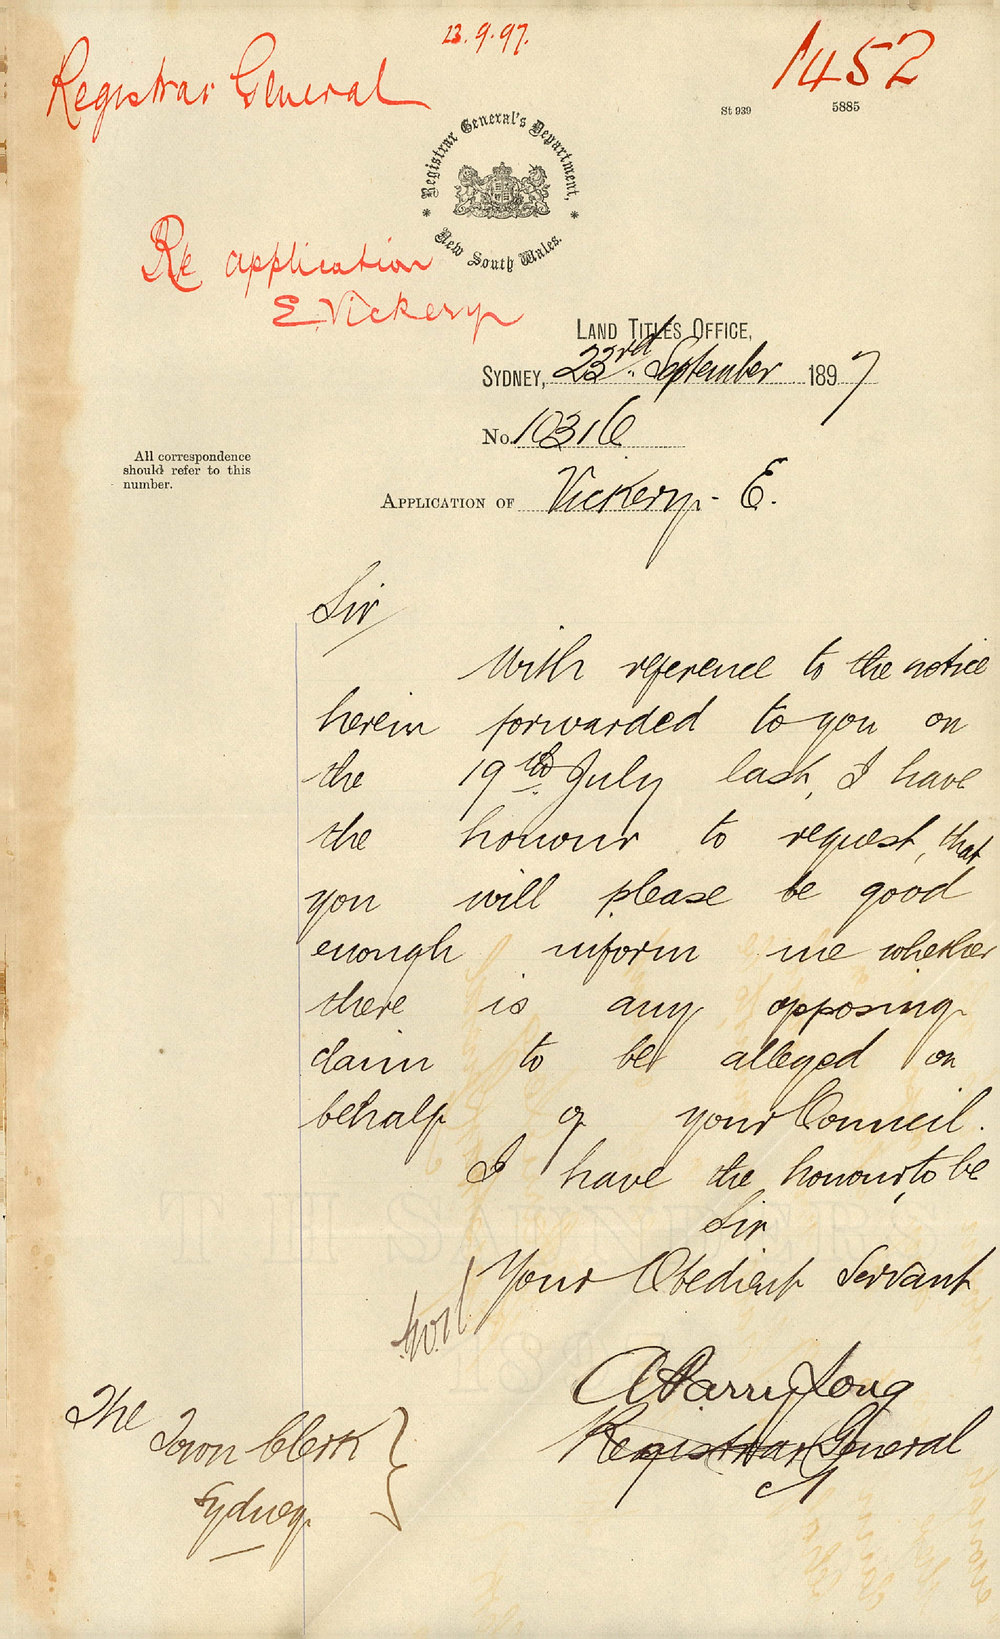 23.9.97.
Registrar General
1452
St 939
5885
Registrar General's Department,
New South Wales.
Re application
E. Vickery
LAND TITLES OFFICE,
SYDNEY, 23rd. September 1897
No. 10316
All correspondence
should refer to this
number.
APPLICATION OF Vickery - E.
Sir
With reference to the notice
herein forwarded to you on
the 19th July last, I have
the honour to request, that
you will please be good
enough inform me whether
there is any opposing
claim to be alleged on
behalf of your Council.
I have the honour, to be
Sir
Your Obedient Servant
Registrar General
The
Town Clerk
Sydney.
T H SAUNDERS